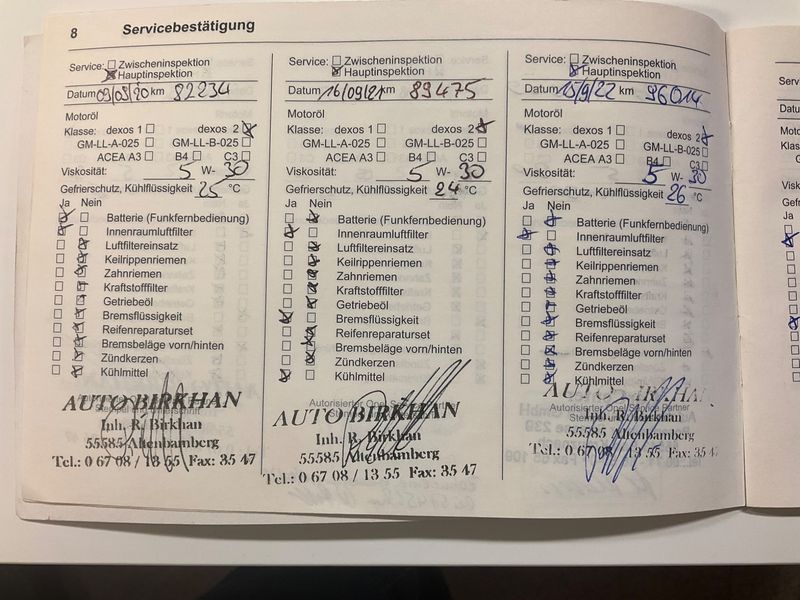 8 Servicebestätigung
Service: Zwischeninspektion
Hauptinspektion
Datum 09/09/20 km 82234
Motoröl
Klasse: dexos 1 dexos 2
GM-LL-A-025 GM-LL-B-025
ACEA A3 B4 C3
Viskosität: 5 W- 30
Gefrierschutz, Kühlflüssigkeit 25 °C
Ja Nein
Batterie (Funkfernbedienung)
Innenraumluftfilter
Luftfiltereinsatz
Keilrippenriemen
Zahnriemen
Kraftstofffilter
Getriebeöl
Bremsflüssigkeit
Reifenreparaturset
Bremsbeläge vorn/hinten
Zündkerzen
Kühlmittel
AUTO BIRKHAN
Inh. R. Birkhan
55585 Altenbamberg
Tel.: 0 67 08 / 13 55 Fax: 35 47
Service: Zwischeninspektion
Hauptinspektion
Datum 16/09/21 km 89475
Motoröl
Klasse: dexos 1 dexos 2
GM-LL-A-025 GM-LL-B-025
ACEA A3 B4 C3
Viskosität: 5 W- 30
Gefrierschutz, Kühlflüssigkeit 24 °C
Ja Nein
Batterie (Funkfernbedienung)
Innenraumluftfilter
Luftfiltereinsatz
Keilrippenriemen
Zahnriemen
Kraftstofffilter
Getriebeöl
Bremsflüssigkeit
Reifenreparaturset
Bremsbeläge vorn/hinten
Zündkerzen
Kühlmittel
Autorisierter Opel
AUTO BIRKHAN
Inh. R. Birkhan
55585 Altenbamberg
Tel.: 0 67 08 / 13 55 Fax: 35 47
Service: Zwischeninspektion
Hauptinspektion
Datum 15/9/22 km 96014
Motoröl
Klasse: dexos 1 dexos 2
GM-LL-A-025 GM-LL-B-025
ACEA A3 B4 C3
Viskosität: 5 W- 30
Gefrierschutz, Kühlflüssigkeit 26 °C
Ja Nein
Batterie (Funkfernbedienung)
Innenraumluftfilter
Luftfiltereinsatz
Keilrippenriemen
Zahnriemen
Kraftstofffilter
Getriebeöl
Bremsflüssigkeit
Reifenreparaturset
Bremsbeläge vorn/hinten
Zündkerzen
Kühlmittel
AUTO BIRKHAN
Autorisierter Opel Service Partner
Inh. R. Birkhan
55585 Altenbamberg
Tel.: 0 67 08 / 13 55 Fax: 35 47